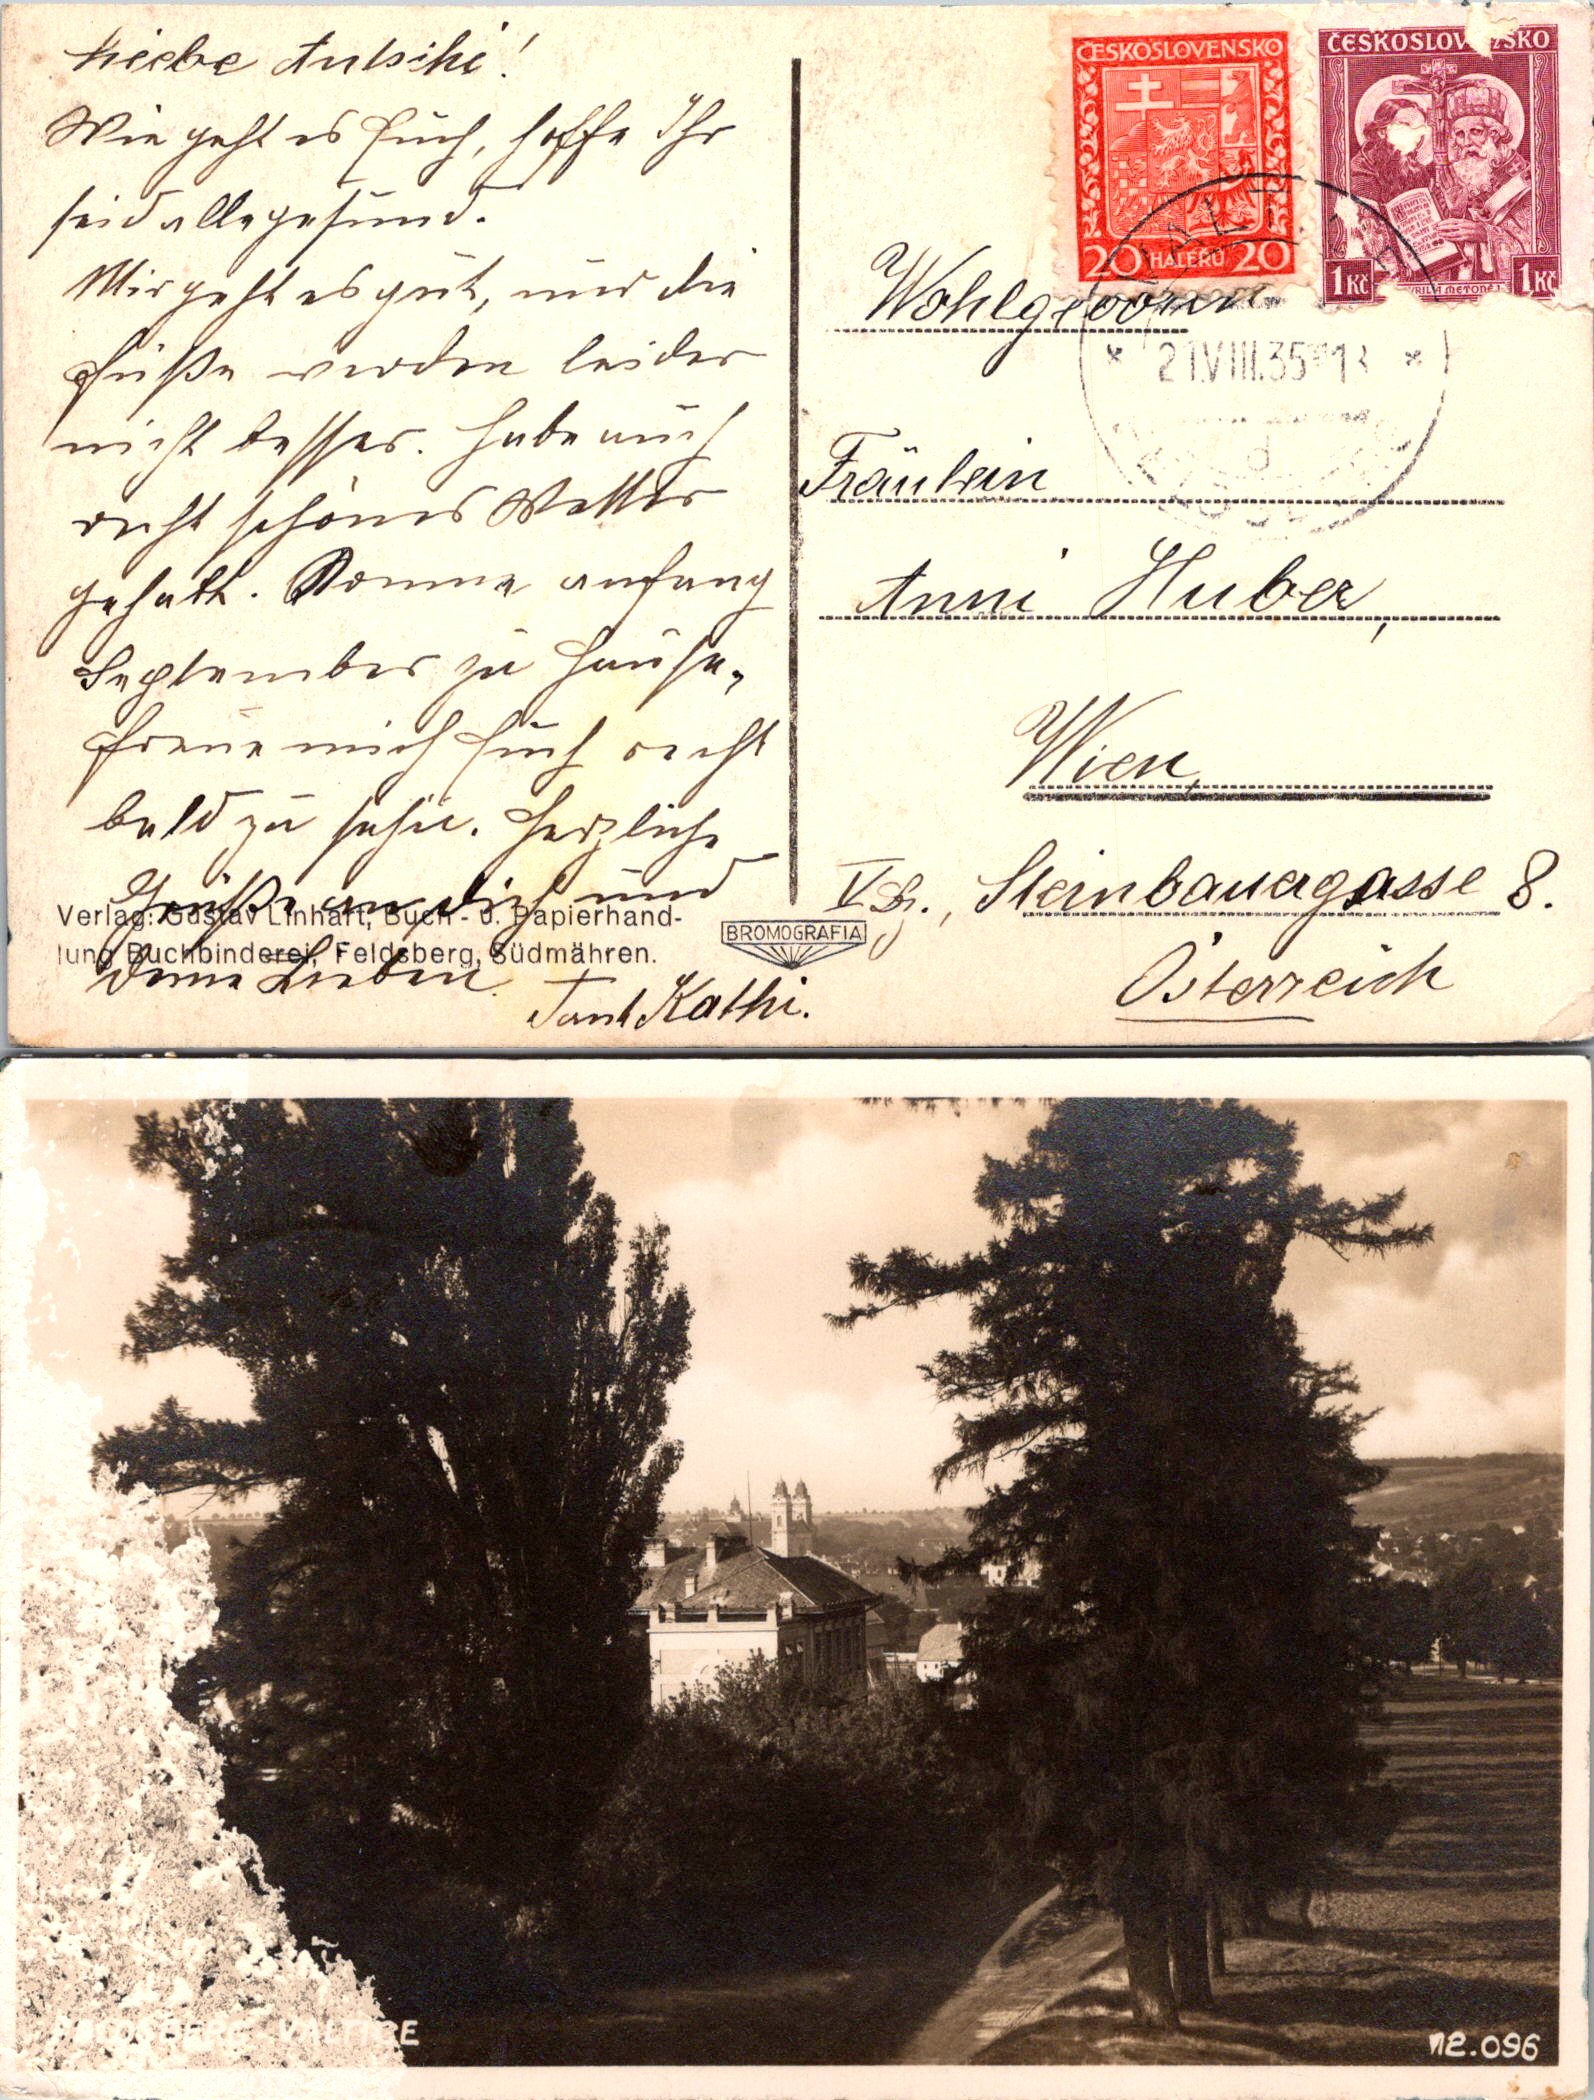 Liebe Antschi!
Wie geht es Euch, hoffe Ihr
seid alle gesund.
Mir geht es gut, nur die
Füße werden leider
nicht besser. Habe auch
recht schönes Wetter
gehabt. Komme anfang
September zu Hause,
freue mich Euch recht
bald zu sehn. Herzliche
Grüße an dich und
deine Lieben
Tant Kathi.
Verlag: Gustav Linhart, Buch- u. Papierhand-
lung Buchbinderei, Feldsberg, Südmähren.
BROMOGRAFIA
ČESKOSLOVENSKO
20 HALÉŘŮ 20
ČESKOSLOVENSKO
1Kč 1Kč
VALT
* 21.VIII.35 *
d
Wohlgeborn
Fräulein
Anni Huber,
Wien,
V Bz., Steinbauergasse 8.
Österreich
FELDSBERG - VALTICE
12.096